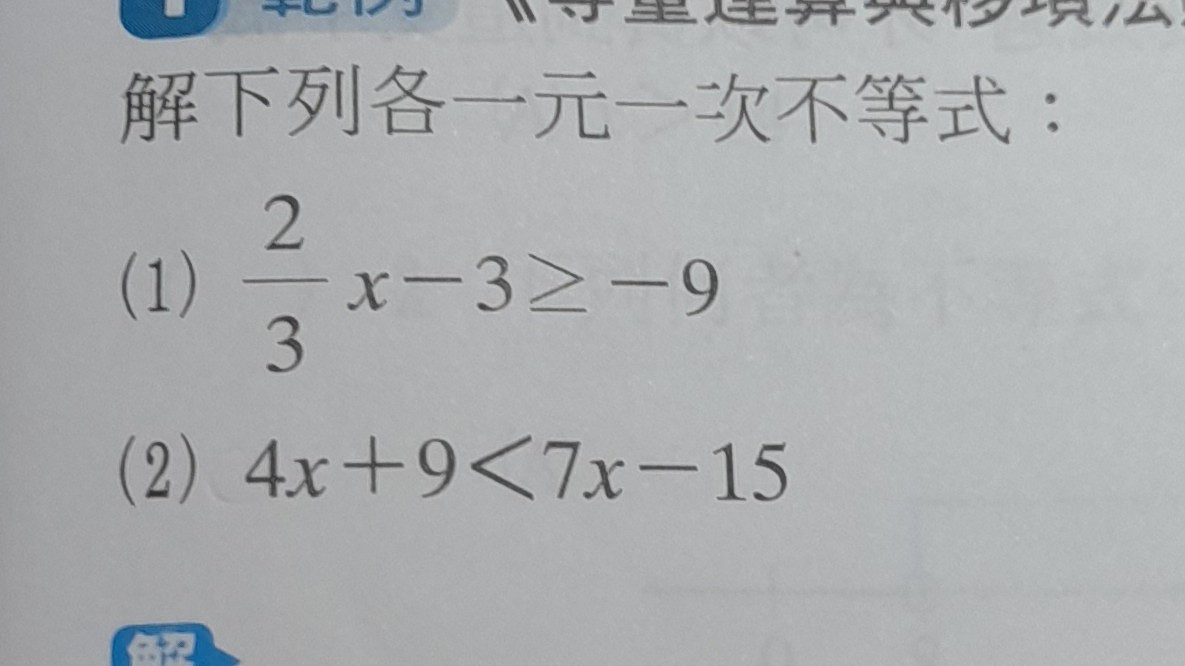 1 範例 《等量運算與移項法
解下列各一元一次不等式：
(1) \frac{2}{3}x－3≥－9
(2) 4x＋9＜7x－15
解